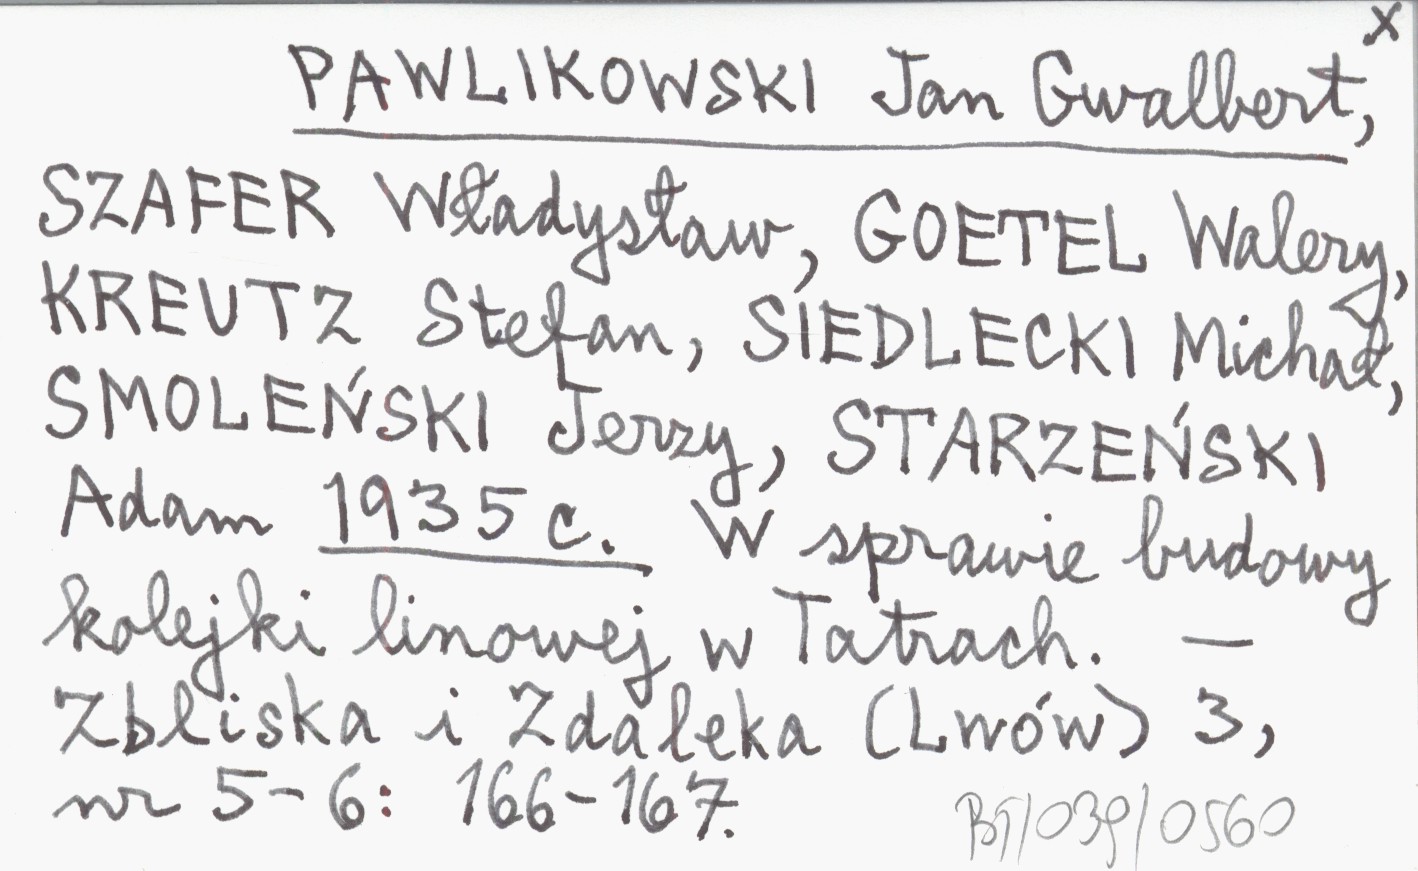 x
PAWLIKOWSKI Jan Gwalbert,
SZAFER Władysław, GOETEL Walery,
KREUTZ Stefan, SIEDLECKI Michał,
SMOLEŃSKI Jerzy, STARZEŃSKI
Adam 1935 c. W sprawie budowy
kolejki linowej w Tatrach. —
Zbliska i Zdaleka (Lwów) 3,
nr 5-6: 166-167.
BT/039/0560